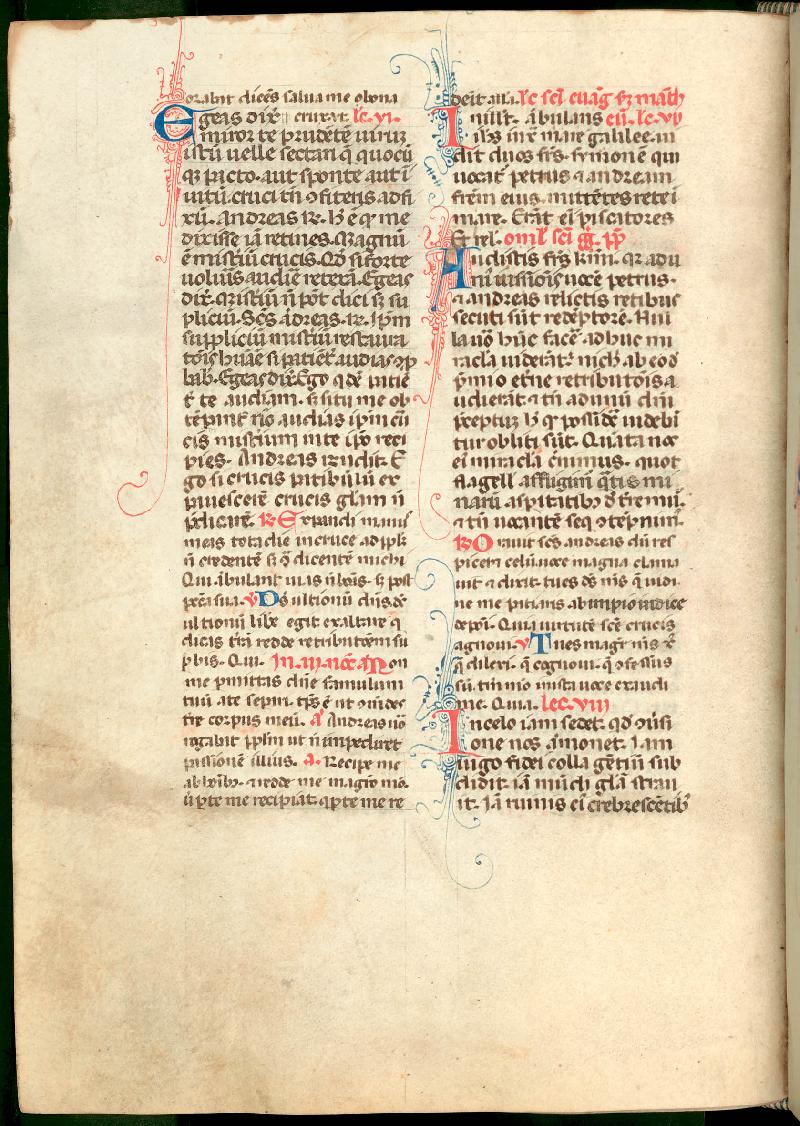 orabit dicēs salua me o bona
Egeas dix̄ crux at lc̄. vi.
miror te prudētē uiruȝ
istū uelle sectari q̄ quocū
qȝ pacto. aut sponte aut ī
uitū. cruci tn̄ ꝯfiteris adfi
xū. Andreas rn̄. h̄ ē qͥ me
dixisse iā retines. Magnū
ē mist̄iū crucis. Qd̄ si forte
uoluīs audīe reterā. Egeas
dix̄. Mist̄iū n̄ pōt dici sȝ su
pliciū. Scs̄ ādreas. rn̄. Ip̄m
suppliciū mist̄iū restaura
tōis huāe si patiēt̄ audias ꝓ
bab̄. Egeas dix̄. Ego qͥdē patiē
t̄ te audiam. sȝ si tu me ob
tēpāt̄ nō audias ip̄m cru
cis mist̄ium in te ip̄o reci
pies. Andreas rn̄dit. E
go si crucis patibulū ex
pauescerē crucis glām n̄
p̄dicarē. R̄ Expandi manus
meas tota die in cruce ad pp̄lm̄
n̄ credentē sȝ ꝯ̄dicentē michi
Qui ābulant uias n̄ bonas sȝ post
pctā sua. v̄ Ds̄ ultionū dn̄s dē
ultionū libē egit exaltare q̄
dicas tr̄ā redde retributōem su
ꝑbis. Qui. In .iii. noc̄. an̄ Non
me ꝑmittas dn̄e famulum
tuū a te sepāri. tp̄s ē ut ꝯmdet̄
tr̄e corpus meū. a̅ Andreas uō
rogabat pp̄lm ut n̄ impediret
passionē illius. a̅. Recipe me
ab hoībȝ. ⁊ redde me magro meo
ū ꝑ te me recipiat. q̇ ꝑ te me re
demit. all̄a. lc̄ scī euāg. sȝ math̄.
In illo t̄. Ābulans eū. lc̄. vii
ih̄s iux̄ mare galilee. ui
dit duos fr̄s. symonē qui
uocat̄ petrus ⁊ andream
fr̄em eius. mittētes rete ī
mare. Erāt eī piscatores
Et rel̄. omlˀ scī gg̅. pp̄
Audistis fr̄s km̄i. qꝛ ad u
nī iussiōis uocē petrus.
⁊ andreas relictis retibus
secuti sūt redēptorē. Nul
la uō hūc facē adhuc mi
racla uiderāt. nichil ab eod̄
p̄mio etn̄e retributōis a
udierāt ⁊ tn̄ ad unū dn̄i
p̄ceptuȝ h̄ qͦ possidē uidebā
tur obliti sūt. Quāta nos
eī miracla cernimus. quot
flagell̄ affligim̄ qͣtis mi
narū aspitatibȝ dēt̄remur.
⁊ tn̄ uocantē seq̄ ꝯtēpnim̄.
R̄ Orauit scs̄ andreas dū res
picerēt celū uoce magna clama
uit ⁊ dixit. tu es ds̄ ms̄ quē uidi
ne me patiaris ab impio iudice
depōi. Quia uirtutē scē crucis
agnoui. v̄ Tu es magr̄ ms̄ xp̄e
quē dilexi. quē cognoui. quē ꝯfessus
sū. tm̄mō in ista uoce exaudi
me. Quia. lec̄. viii
In celo iam sedet. qd̄ ꝯuersi
one nos āmonet. Iam
iugo fidei colla gētiū sub
didit. iā mūdi glām strau
it. Iā ruinis eī crebrescētibȝ